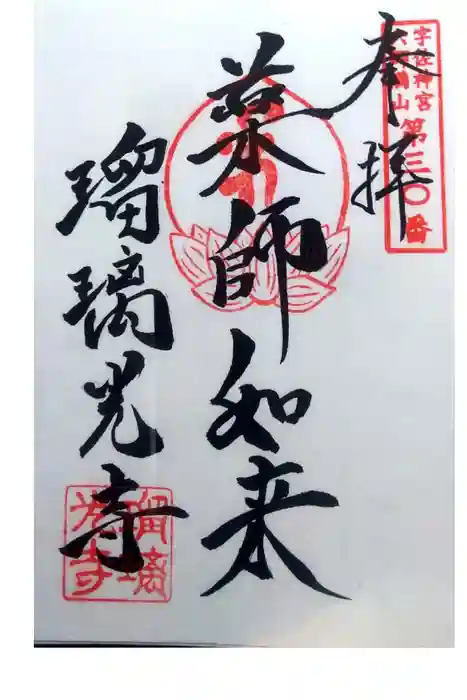 奉拝
宇佐神宮
六郷満山
第三〇番
薬師如来
瑠璃光寺
瑠璃
光寺